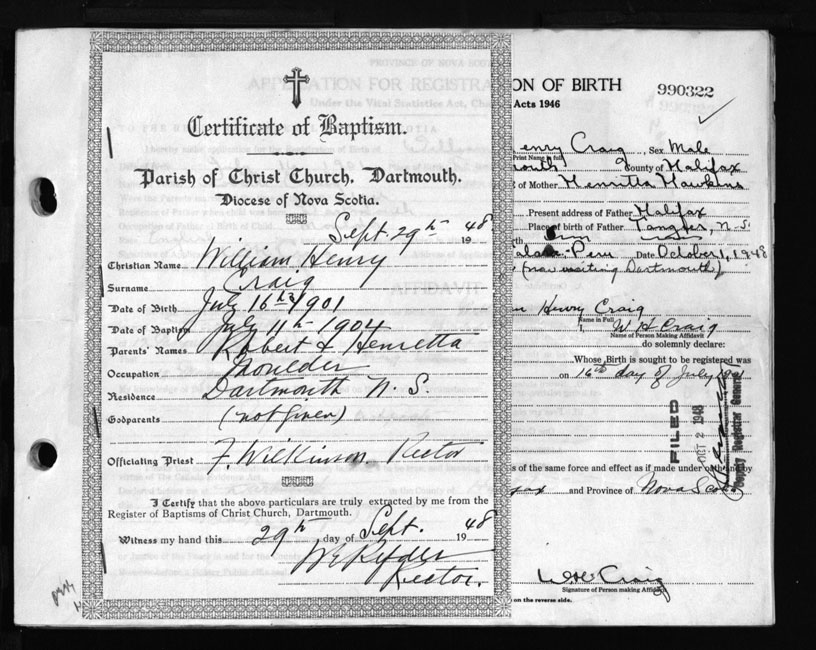 Certificate of Baptism.
Parish of Christ Church, Dartmouth.
Diocese of Nova Scotia.
Sept. 29th 1948
Christian Name William Henry
Surname Craig
Date of Birth July 16th 1901
Date of Baptism July 11th 1904
Parents' Names Robert & Henrietta
Occupation Moulder
Residence Dartmouth N. S.
Godparents (not given)
Officiating Priest F. Wilkinson, Rector
I Certify that the above particulars are truly extracted by me from the
Register of Baptisms of Christ Church, Dartmouth.
Witness my hand this 29th day of Sept. 1948
Rector.
ON OF BIRTH
990322
Acts 1946
enry Craig, Sex Male
Print Name in full
outh County of Halifax
of Mother Henritta Hawkins
Present address of Father Halifax
Place of birth of Father Tangier, N-S.
Peru Date October 1, 1948
(now visiting Dartmouth)
Henry Craig
Name in Full
I, W H Craig
Name of Person Making Affidavit
do solemnly declare:
Whose Birth is sought to be registered was
on 16th day of July 1901
FILED
OCT 2 1948
Deputy Registrar General
s of the same force and effect as if made under oath and by
fax and Province of Nova Scotia
W H Craig
Signature of Person making Affidavit
on the reverse side.